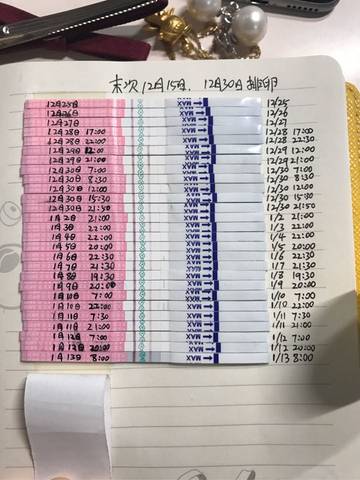 末次12月15日，12月30日排卵
12月25日 MAX 12/25
12月26日 MAX 12/26
12月27日 MAX 12/27
12月28日 17:00 MAX 12/28 17:00
12月28日 22:30 MAX 12/28 22:30
12月29日 12:00 MAX 12/29 12:00
12月29日 21:00 MAX 12/29 21:00
12月30日 7:00 MAX 12/30 7:00
12月30日 8:30 MAX 12/30 8:30
12月30日 12:00 MAX 12/30 12:00
12月30日 15:30 MAX 12/30 15:30
12月30日 21:50 MAX 12/30 21:50
1月2日 21:00 MAX 1/2 21:00
1月3日 22:00 MAX 1/3 22:00
1月4日 22:00 MAX 1/4 22:00
1月5日 20:00 MAX 1/5 20:00
1月6日 22:30 MAX 1/6 22:30
1月7日 21:30 MAX 1/7 21:30
1月8日 19:30 MAX 1/8 19:30
1月9日 20:00 MAX 1/9 20:00
1月10日 7:00 MAX 1/10 7:00
1月10日 22:00 MAX 1/10 22:00
1月11日 7:30 MAX 1/11 7:30
1月11日 21:00 MAX 1/11 21:00
1月12日 7:00 MAX 1/12 7:00
1月12日 20:00 MAX 1/12 20:00
1月13日 8:00 MAX 1/13 8:00